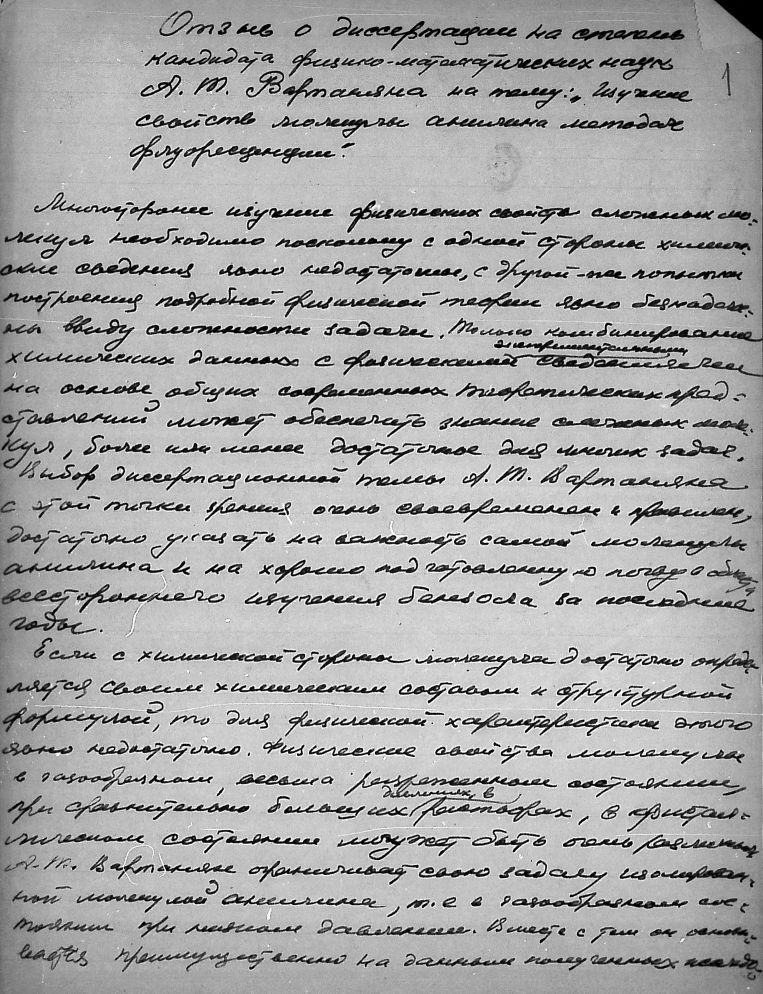 Отзыв о диссертации на степень
кандидата физико-математических наук
А. Т. Вартаняна на тему: „Изучение
свойств молекулы анилина методах
флуоресценции“.
1
Многостороннее изучение физических свойств сложных мо-
лекул необходимо поскольку с одной стороны химиче-
ские сведения явно недостаточны, с другой же попытки
построения подробной физической теории явно безнадеж-
ны ввиду сложности задачи. Только комбинирование
экспериментальными
химических данных с физическими сведениями
на основе общих современных теоретических пред-
ставлений может обеспечить знание сложных моле-
кул, более или менее достаточное для многих задач.
Выбор диссертационной темы А. Т. Вартаняна
с этой точки зрения очень своевременен и правилен,
достаточно указать на важность самой молекулы
анилина и на хорошо подготовленную почву в
всестороннего изучения бензола за последние
годы.
Если с химической стороны молекула достаточно опреде-
ляется своим химическим составом и структурной
формулой, то для физической характеристики этого
явно недостаточно. Физические свойства молекулы
в газообразном, весьма разреженном состоянии,
давлениях, в
при сравнительно больших растворах, в кристал-
лическом состоянии могут быть очень различны
А. Т. Вартанян ограничивает свою задачу изолирован-
ной молекулой анилина, т. е. в газообразном сос-
тоянии при низком давлении. Вместе с тем он основы-
вается преимущественно на данных полученных